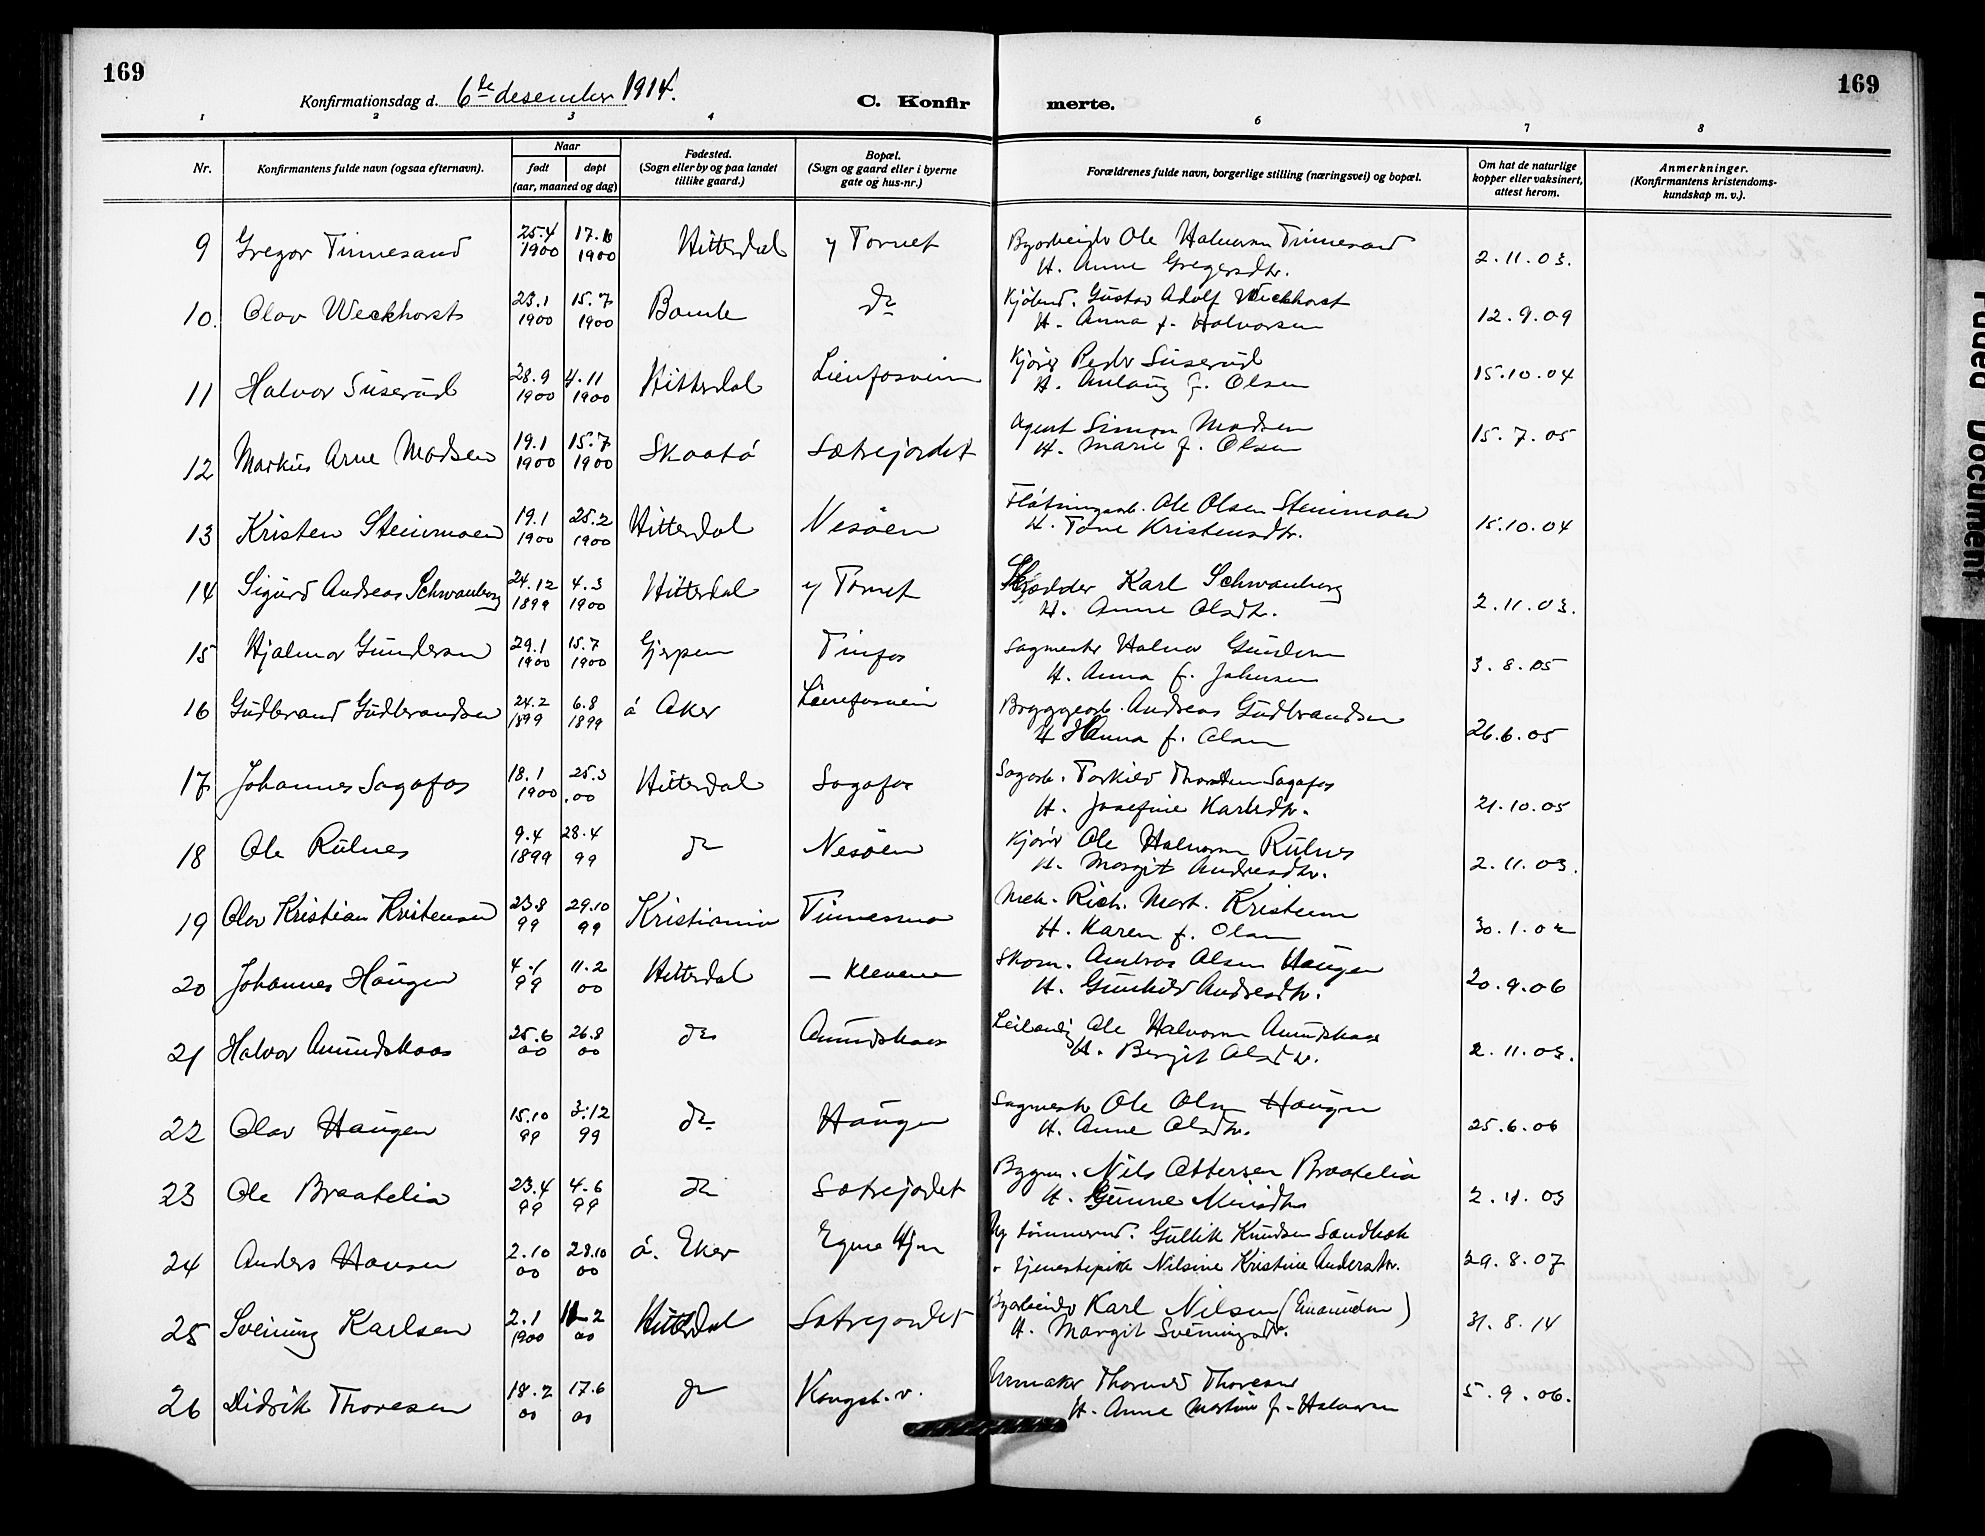 169
169
Konfirmationsdag d. 6te desember 1914.
C. Konfir merte.
1 2 3 4 5 6 7 8
Nr.
Konfirmantens fulde navn (ogsaa efternavn).
Naar
født døpt
(aar, maaned og dag)
Fødested.
(Sogn eller by og paa landet
tillike gaard.)
Bopæl.
(Sogn og gaard eller i byerne
gate og hus-nr.)
Forældrenes fulde navn, borgerlige stilling (næringsvei) og bopæl.
Om hat de naturlige
kopper eller vaksinert,
attest herom.
Anmerkninger.
(Konfirmantens kristendoms-
kundskap m. v.).
9 Gregar Tinnesand 25.4 1900 17.6 1900 Hitterdal y Tornet Byarbeider Ole Halvorsen Tinnesand
H. Anne Gregersdtr. 2.11.03.
10. Olav Weckhorst 23.1 1900 15.7 1900 Bamle do Gustav Adolf Weckhorst
H. Anna f. Halvorsen 12.9.09
11 Halvor Suserud 28.9 1900 4.11 1900 Hitterdal Lienfosveien Kjører Peder Suserud
H. Aulaug f. Olsen 15.10.04
12 Markus Arne Madsen 19.1 1900 15.7 1900 Skaatø Sætrejordet Agent Simon Madsen
H. Marie f. Olsen 15.7.05
13 Kristen Steinmoen 19.1 1900 25.2 1900 Hitterdal Nesøen Fløtningsarb. Ole Olsen Steinmoen
H. Tone Kristensdtr. 15.10.04
14 Sigurd Andreas Schwanberg 24.12 1899 4.3 1900 Hitterdal y Tornet Skrædder Karl Schwanberg
H. Anne Olsdtr. 2.11.03.
15 Hjalmar Gundersen 29.1 1900 15.7 1900 Gjerpen Tinfos Sagmester Halvor Gundersen
H. Anna f. Johnsen 3.8.05
16 Gudbrand Gudbrandsen 24.2 1899 6.8 1899 ø Aker Lienfosveien Bryggearb. Andreas Gudbrandsen
H. Anna f. Olsen 26.6.05
17 Johannes Sagafos 18.1 1900 25.3 .00 Hitterdal Sagafos Sagarb. Torkild Thorsten Sagafos
H. Josefine Karlsdtr. 21.10.05
18 Ole Rulnes 9.4 1899 28.4 99 do Nesøen Kjører Ole Halvorsen Rulnes
H. Margit Andresdtr. 2.11.03.
19 Olav Kristian Kristensen 23.8 99 29.10 99 Kristiania Tinnesmo Mek. Rich. Mart. Kristensen
H. Karen f. Olsen 30.1.02
20 Johannes Haugen 4.1 99 11.2 00 Hitterdal — Klevene Skom. Ambros Olsen Haugen
H. Gunhild Andresdtr. 20.9.06
21 Halvor Amundskaas 25.6 00 26.8 00 do Amundskaas Leilending Ole Halvorsen Amundskaas
H. Bergit Olsdtr. 2.11.03.
22 Olav Haugen 15.10 99 3.12 99 do Haugen Sagmester Ole Olsen Haugen
H. Anne Olsdtr. 25.6.06
23 Ole Braatelia 23.4 99 4.6 99 do Sætrejordet Bygm. Nils Ottersen Braatelia
H. Gunne 2.11.03
24 Anders Hansen 2.10 00 28.10 00 ø. Eker Egne Hjem Ug tømmerm. Gullik Knudsen Sandbæk
Tjenestepike Nilsine Kristine Andersdtr. 29.8.07
25 Sveinung Karlsen 2.1 1900 11-2 00 Hitterdal Sætrejordet Byarbeider Karl Nilsen
H. Margit Sveinungsdtr. 31.8.14
26 Didrik Thoresen 18.2 00 17.6 00 do Kongsb. v. Urmaker Thorvald Thoresen
H. Anne Martine f. Halvorsen 5.9.06.
Faded Document